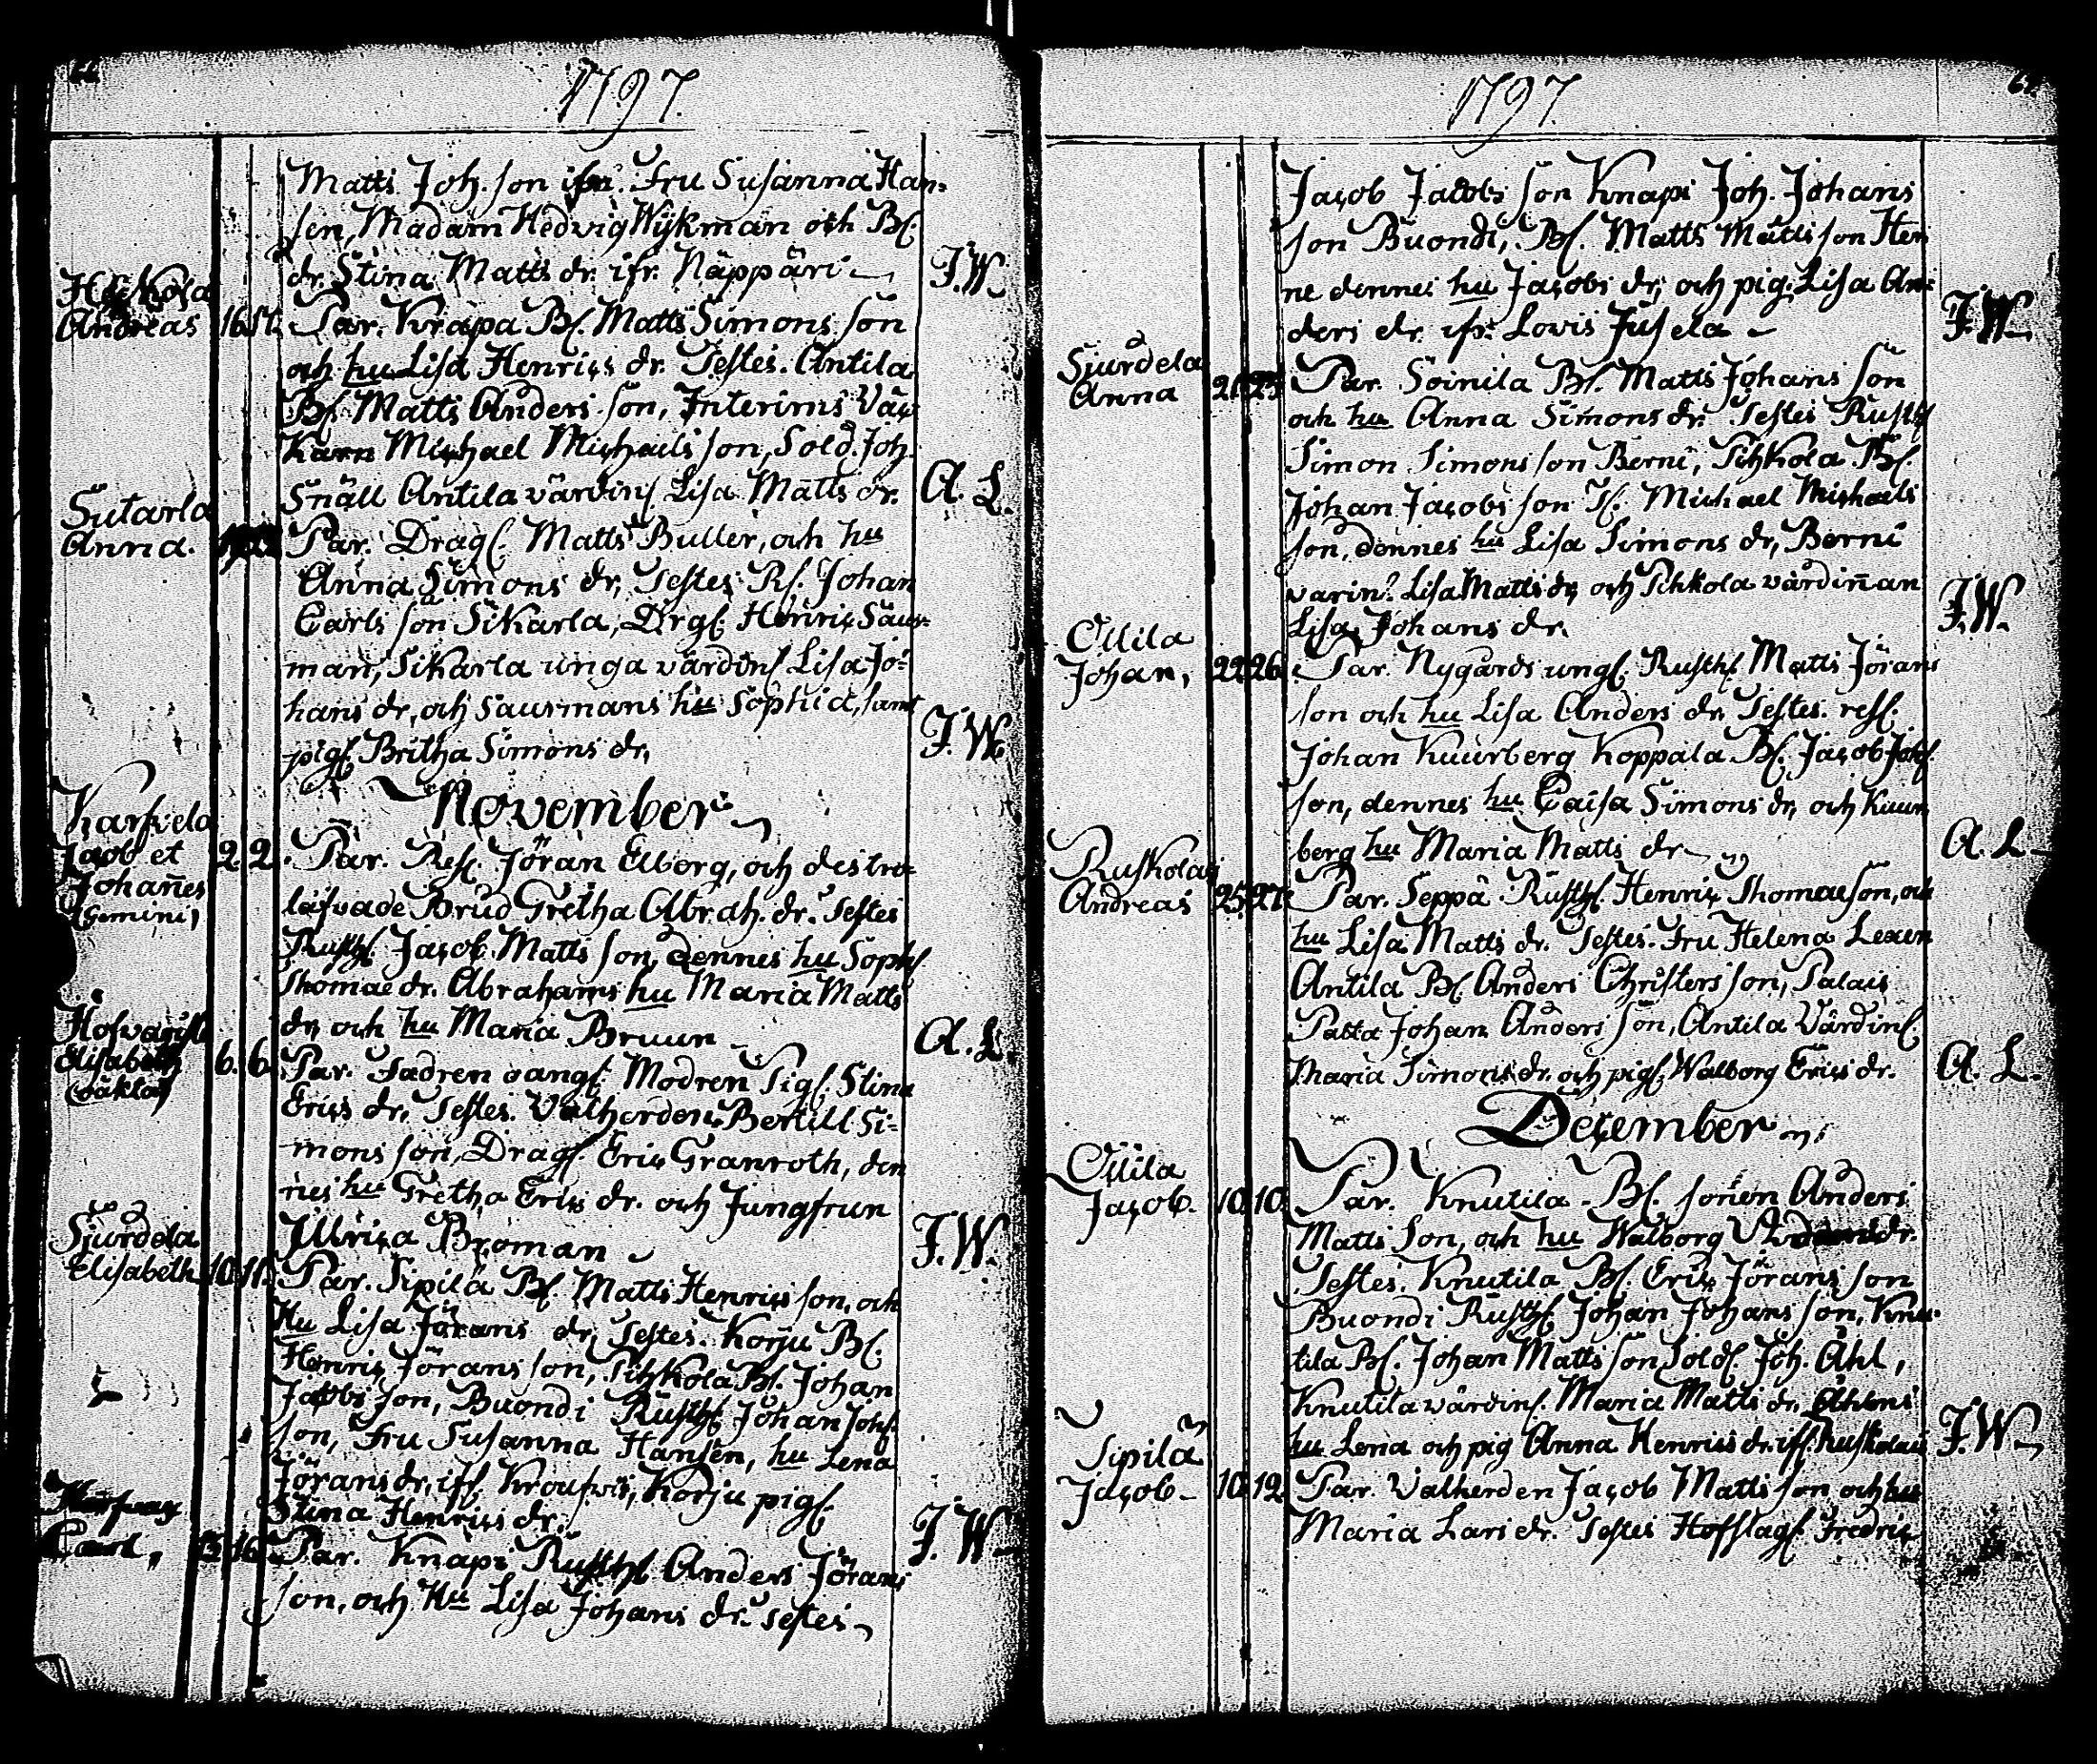 1797.
Matts Joh. son ifr. Fru Susanna Han-
sen, Madam Hedvig Wijkman och Bs.
dr. Stina Matts dr. ifr. Näppäri
J. W.
Andreas 16 17. Par. Krapa Bs. Matts Simons son
och hu Lisa Henrics dr. Testes. Antila
Bs. Matts Anders son, Interims
Karn Michael Michaels son, Sold. Joh.
Snäll Antila värdins. Lisa Matts dr.
A. L.
Sutarla
Anna. Par. Drags. Matts Buller, och hu
Anna Simons dr, Testes Rs. Johan
Carls son Sikarla, Drgs. Henric Saur-
man, Sikarla unga värdins. Lisa Jo-
hans dr, och Saurmans hu Sophia, samt
pigs. Britha Simons dr,
J. W.
November
Karfvela
Jacob et
Johannes
Gemini,
2. 2. Par. Jöran Elberg, och des tro-
läfvade Brud Gretha Abrah. dr. Testes
Rusth. Jacob Matts son, dennes hu Soph.
Thomae dr. Abrahams hu Maria Matts
dr, och hu Maria Bruun
A. L.
Elisabeth
oäkta
6. 6. Par. Fadren oangs. Modren Pigs. Stina
Erics dr, Testes. Vallherden Bertill Si-
mons son, Drags. Eric Granroth, den
nes hu Gretha Erics dr. och Jungfrun
Ulrica Broman
J. W.
Sjurdela
Elisabeth 10. 11. Par. Sipilä Bs. Matts Henrics son, och
Hu Lisa Jörans dr, Testes. Korju Bs.
Henric Jörans son, Pihkola Bs. Johan
Jacobs son, Buondi Rusth. Johan Johs.
son, Fru Susanna Hansen, hu Lena
Jörans dr, ifr. Korju pigs.
Stina Henrics dr.
J. W.
Carl, 16. Par. Knapi Rusth. Anders Jörans
son, och Hu Lisa Johans dr. Testes
1797.
Jacob Jacobs son Knapi Joh. Johans
son Buondi, Bs. Matts Matts son Hen
ne dennes hu Jacobs dr, och pig. Lisa An-
ders dr. ifr. Lovis Jusela
J. W.
Sjurdela
Anna 21 25 Par. Soinila Bs. Matts Johans son
och hu Anna Simons dr. Testes Rusth
Simon Simons son Berni, Pihkola Bs.
Johan Jacobs son Michael Michaels
son, dennes hu Lisa Simons dr, Berni
Lisa Matts dr, och Pihkola värdinan
Lisa Johans dr.
J. W.
Ollila
Johan, 22 26. Par. Nygårds ungs. Rusth. Matts Jörans
son och hu Lisa Anders dr, Testes.
Johan Kuurberg Koppala Bs. Jacob Johs.
son, dennes hu Caisa Simons dr, och Kuur
berg hu Maria Matts dr
A. L.
Ruskolas
Andreas 25 27. Par. Seppä Rusth. Henric Thomae son, och
hu Lisa Matts dr. Testes. Fru Helena Lexen
Antila Bs. Anders Christers son, Palais
Patta Johan Anders son, Antila Värdins.
Maria Simons dr. och pigs. Walborg Erics dr.
A. L.
December
Ollila
Jacob. 10. 10. Par. Knutila Bs. sonen Anders
Matts son, och hu Walborg dr.
Testes. Knutila Bs. Eric Jörans son
Buondi Rusth. Johan Johans son, Knu-
tila Bs. Johan Matts son, Sold. Joh. Åhl,
Knutila värdins. Maria Matts dr, Åhlens
hu Lena och pig Anna Henrics dr. ifr. Ruskolais
J. W.
Sipilä
Jacob 10. 12. Par. Valherden Jacob Matts son och hu
Maria Lars dr. Testes Fredric